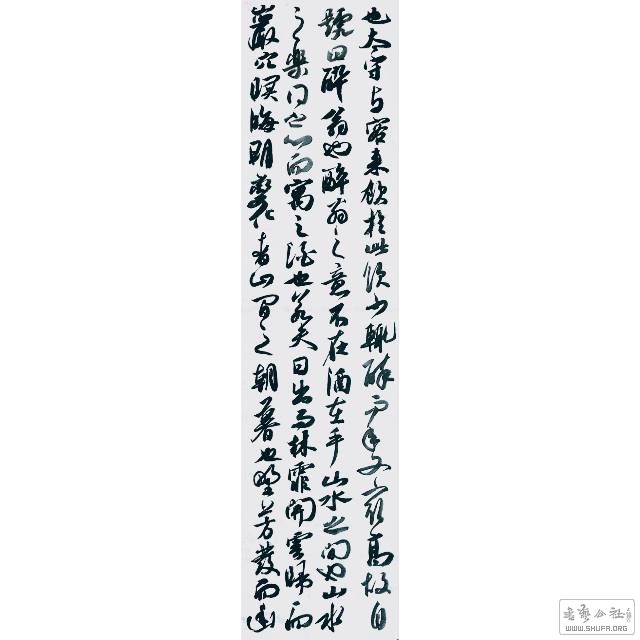 也太守与客来飲於此飲少輒醉而年又最高故自
號曰醉翁也醉翁之意不在酒在乎山水之間也山水
之樂得之心而寓之酒也若夫日出而林霏開雲歸而
巖穴暝晦明變化者山間之朝暮也野芳發而幽
书艺公社
WWW.SHUFA.ORG